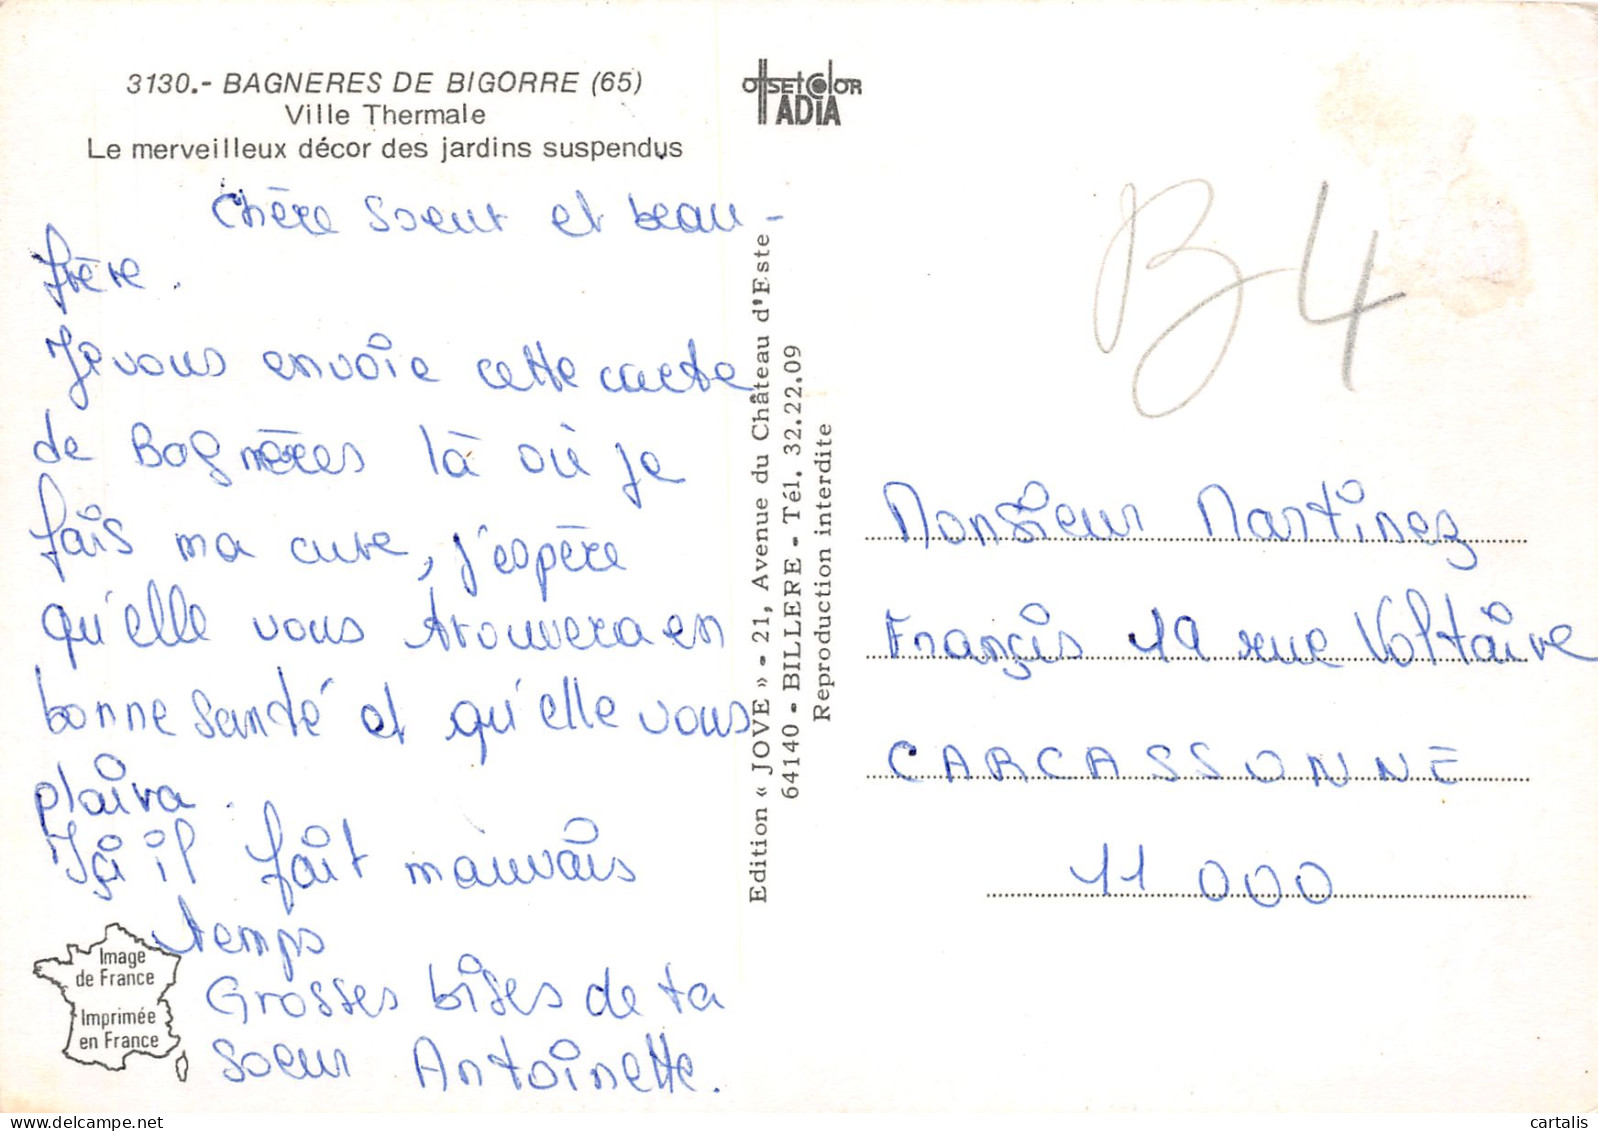 3130.- BAGNERES DE BIGORRE (65)
Ville Thermale
Le merveilleux décor des jardins suspendus
Chère Soeur et beau-
frère.
Je vous envoie cette carte
de Bagnères là où je
fais ma cure, j'espère
qu'elle vous trouvera en
bonne santé et qu'elle vous
plaira.
Içi il fait mauvais
temps
Grosses bises de ta
soeur Antoinette.
Image
de France
Imprimée
en France
OffSET COlOR
ADIA
Edition « JOVE » - 21, Avenue du Château d'Este
64140 - BILLERE - Tél. 32.22.09
Reproduction interdite
B4
Monsieur Martinez
Françis 19 rue Voltaire
CARCASSONNE
11 000
cartalis